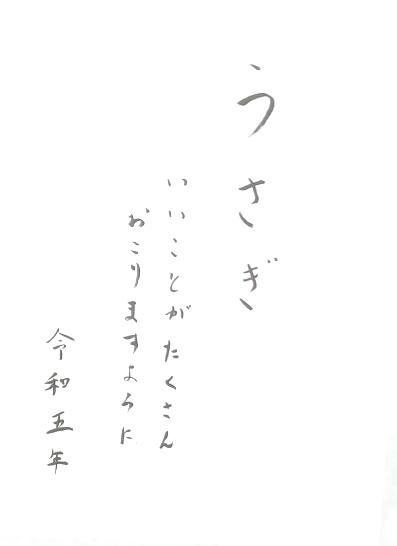 うさぎ
いいことがたくさん
おこりますように
令和五年